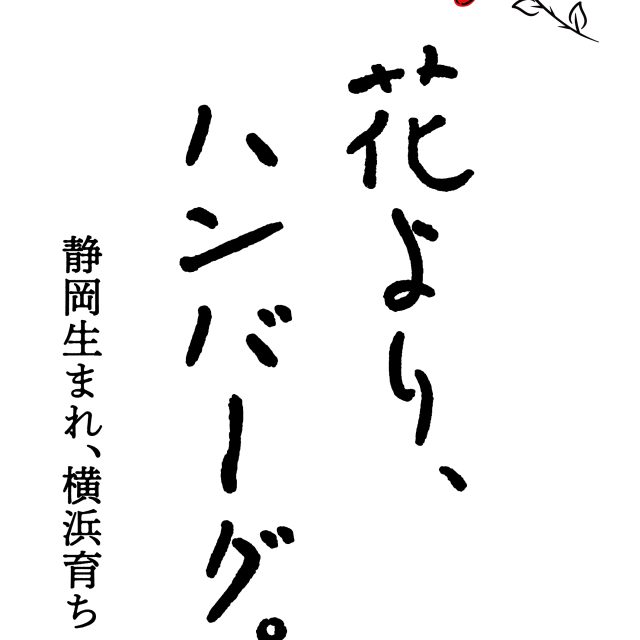 花より、
ハンバーグ。
静岡生まれ、横浜育ち